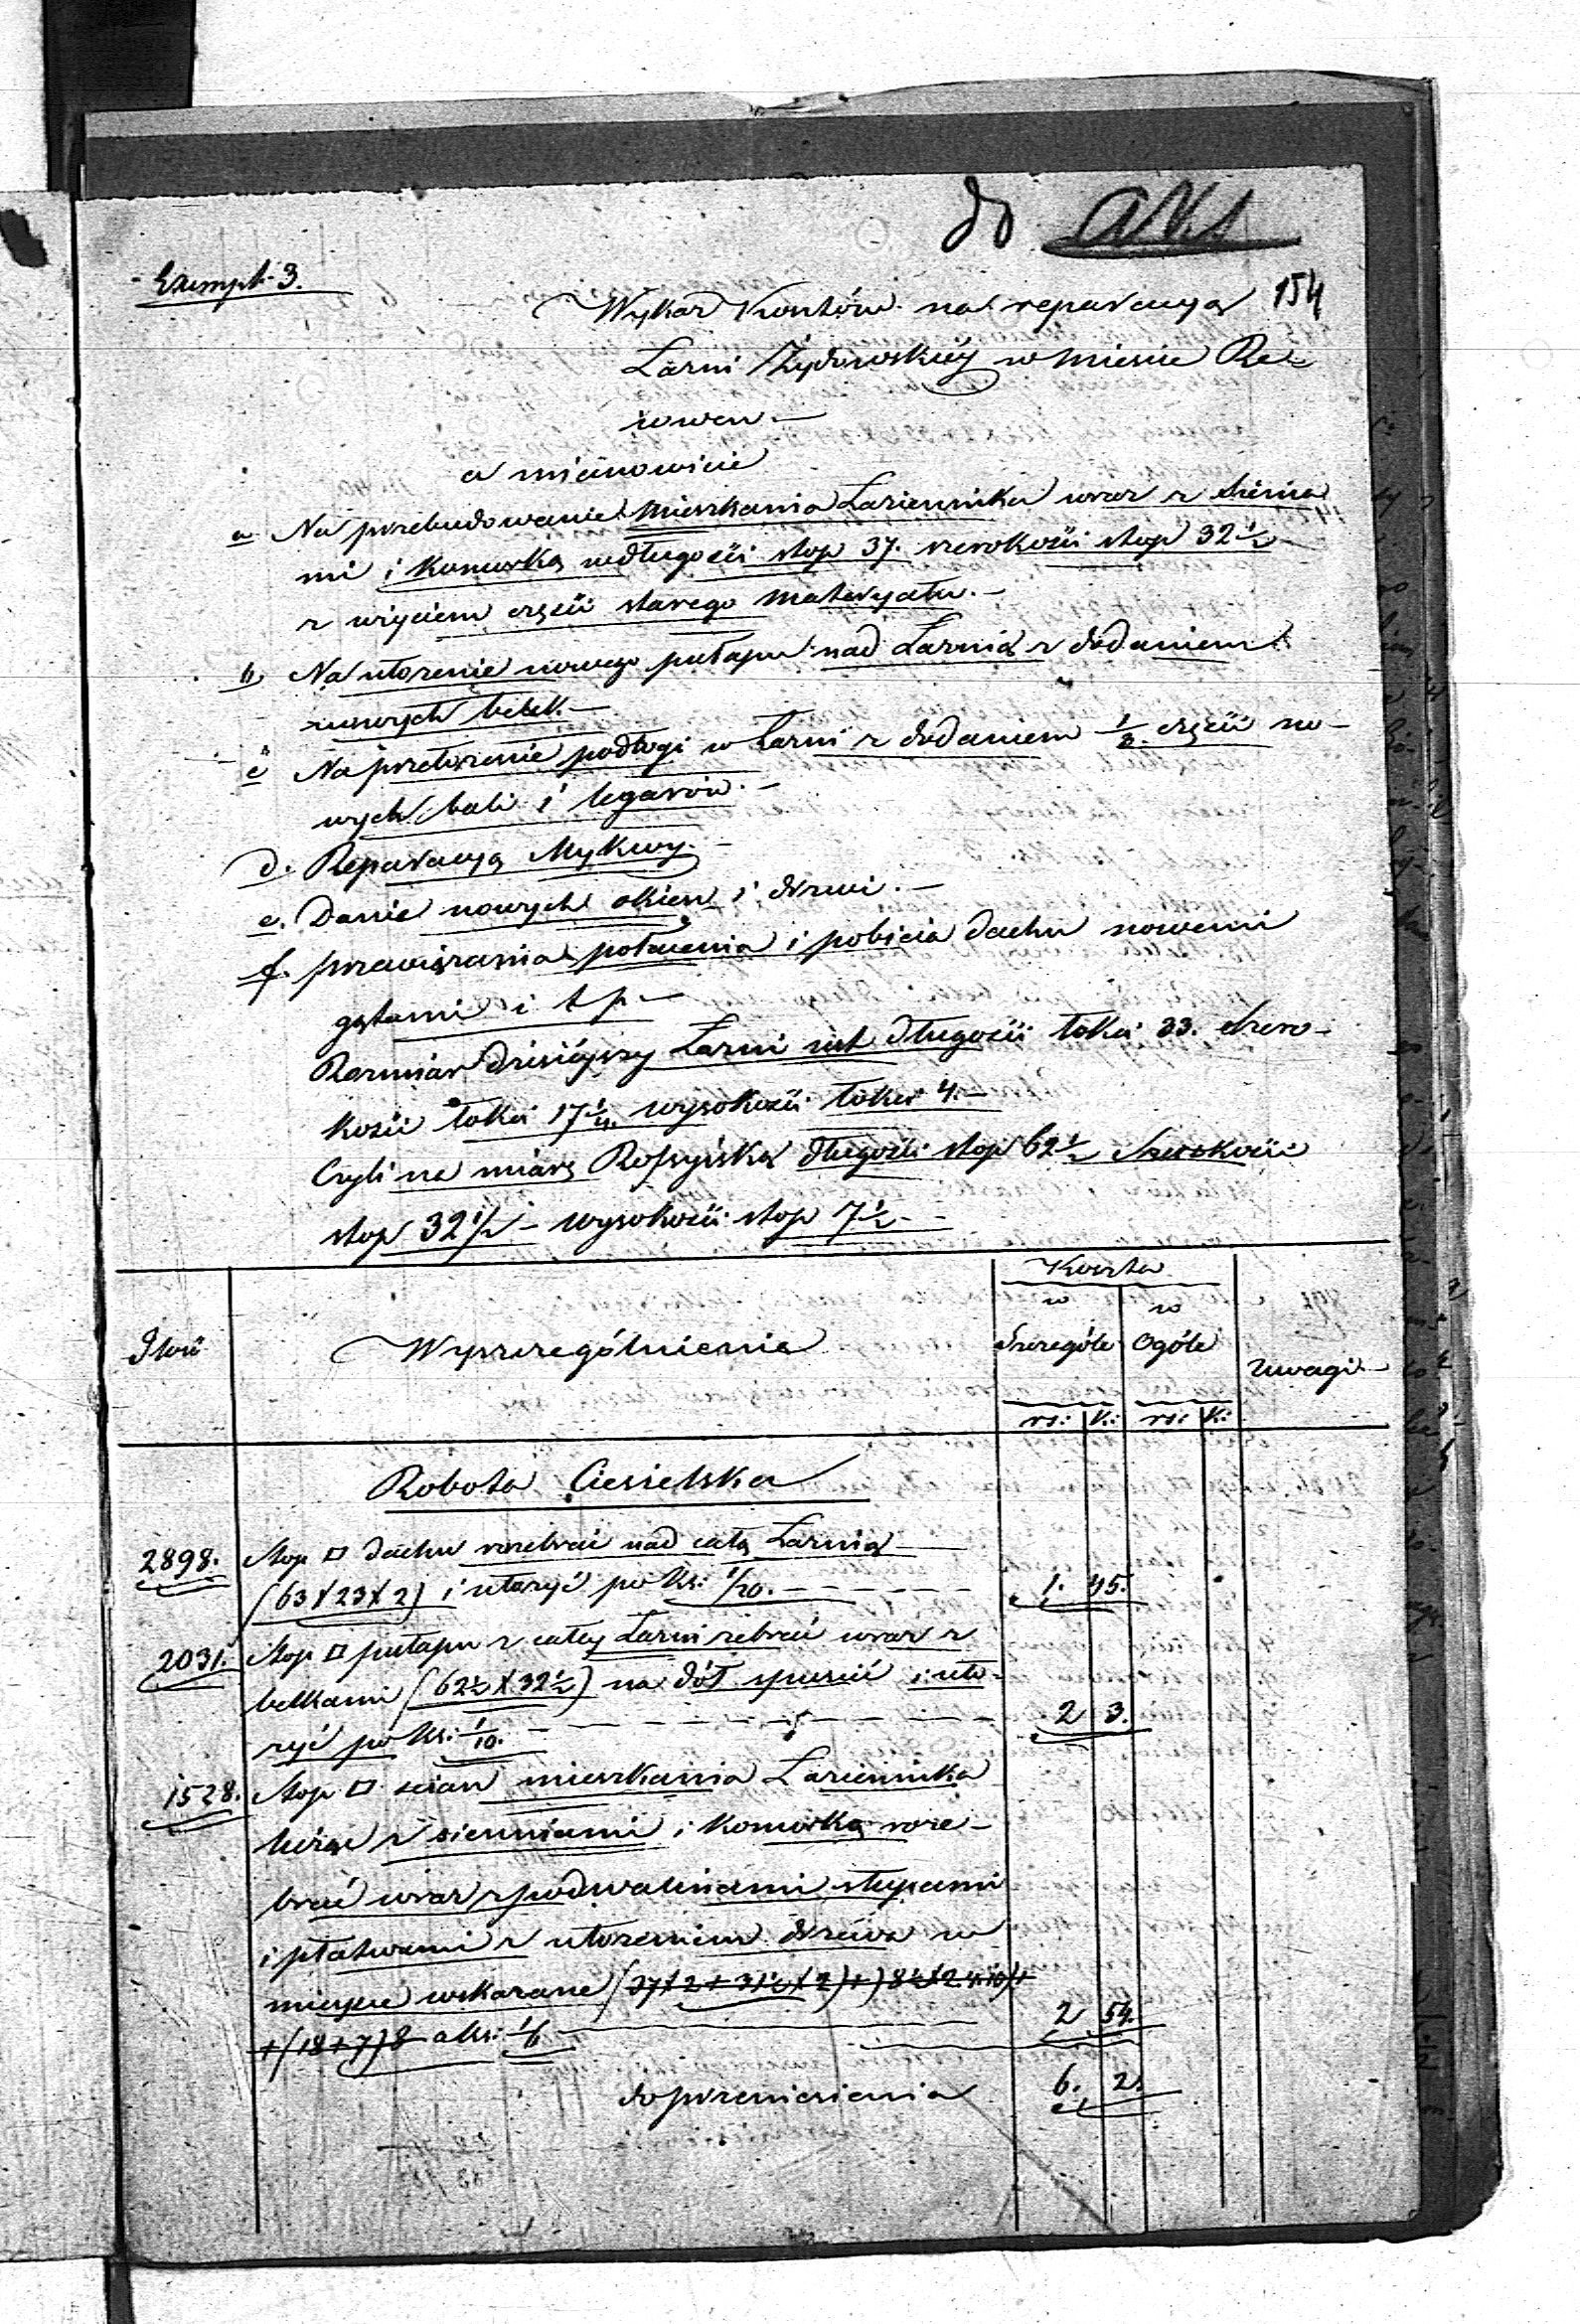 do Akt
Exempl. 3.
154
Wykaz Kosztów na reparacyą
Łazni Żydowskiéy w Mieście Re-
jowcu. —
a mianowicie
a Na przebudowanie Mieszkania Łaziennika wraz z sienia
mi i komurką na długości stop 37. szerokości stop 32 1/2
z użyciem części starego materyału. —
b, Na ułożenie nowego pułapu nad Łaznią z dodaniem
nowych belek. —
c Na przełożenie podłogi w Łazni z dodaniem 1/3. części no-
wych bali i legarów. —
d. Reparacyą Mykwy. —
e. Danie nowych okien i drzwi. —
f. przewiązania połacenia i pobicia dachu nowemi
gątami i t p —
Rozmiar dzisiéyszy Łazni jest długości łokci 33. szero-
kości łokci 17 1/4. wysokości łokci 4. —
Czyli na miarę Rossyiską długości stop 62 1/2 Szerokości
stop 32 1/2 — wysokości stop 7 1/2 —
Koszta
Ilość
Wyszczególnienie
w Szczególe
w Ogóle
Uwagi
rs: k: rs: k:
Robota Ciesielska
2898. Stop □ dachu rozebrać nad całą Łaznią
(63 X 23 X 2) i ułożyć po ks: 1/20. — 1. 45.
2031. Stop □ pułapu z całey Łazni zebrać wraz z
belkami (62 1/2 X 32 1/2) na dół spuścić i uło-
żyć po ks: 1/10. — 2 3.
1528. Stop □ scian mieszkania Łaziennika
licząc z sienniami i komórką roze-
brać wraz z podwalinami słupami
i płatwami z ułożeniem drzewa w
miejsce wskazane
+(18+7)8 a ks: 1/6 — 2 54.
do przeniesienia 6. 2.